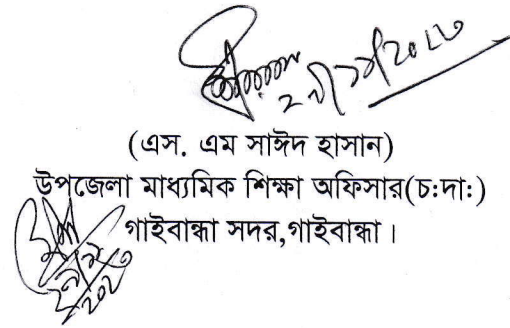 (এস. এম সাঈদ হাসান)
উপজেলা মাধ্যমিক শিক্ষা অফিসার(চ:দা:)
গাইবান্ধা সদর,গাইবান্ধা।